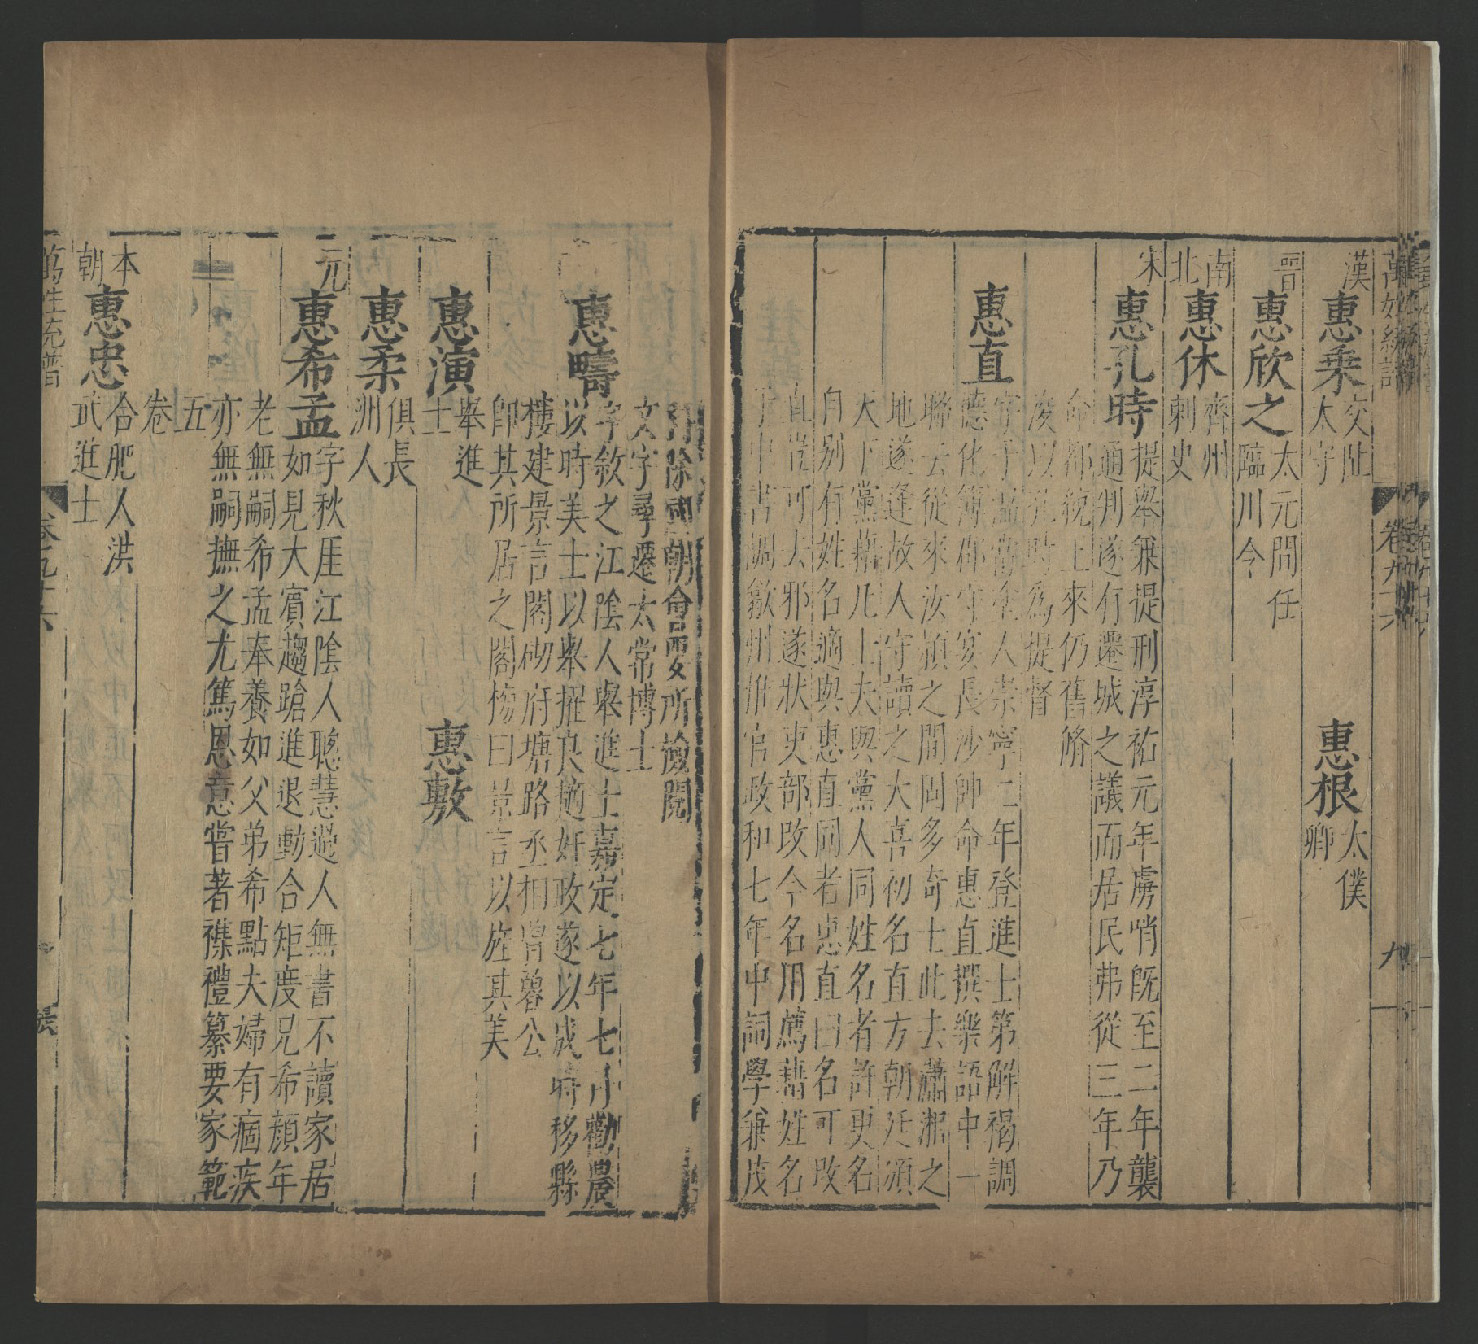 漢
惠乘
交阯
太守
惠根
太僕
卿
晉
惠欣之
太元間任
臨川令
南
北
惠休
齊州
刺史
宋
惠孔時
提舉兼提刑淳祐元年虜哨旣至二年襲
通判遂有遷城之議而居民弗從三年乃
命都統上來仍舊脩
浚以孔時為提督
惠直
字子點舊舍人崇寧二年登進士第解褐調
德化簿郴守宴長沙帥命惠直撰樂語中一
聯云從來汝潁之間固多奇士此去瀟湘之
地遂逢故人守讀之大喜初名直方朝廷頒
天下黨籍凡士大夫與黨人同姓名者許更名
自別有姓名適與惠直同者惠直曰名可改
直豈可去邪遂狀吏部改今名用薦藉姓名
于中書調歙州推官政和七年中詞學兼茂
科除國朝會要所檢閱
文字尋遷太常博士
惠疇
字敘之江陰人舉進士嘉定七年七月勸農
以時美士以舉擢良擿奸政遂以成時移縣
樓建景言閣砌府塘路丞相曾魯公
卽其所居之閣榜曰景言以旌其美
惠演
舉進
士
惠敷
惠柔
俱長
洲人
元
惠希孟
字秋厓江陰人聰慧過人無書不讀家居
如見大賓趨蹌進退動合矩度兄希顏年
老無嗣希孟奉養如父弟希點夫婦有痼疾
亦無嗣撫之尤篤恩意嘗著襍禮纂要家範
五
卷
本
朝
惠忠
合肥人洪
武進士
萬姓統譜
卷九十六
九